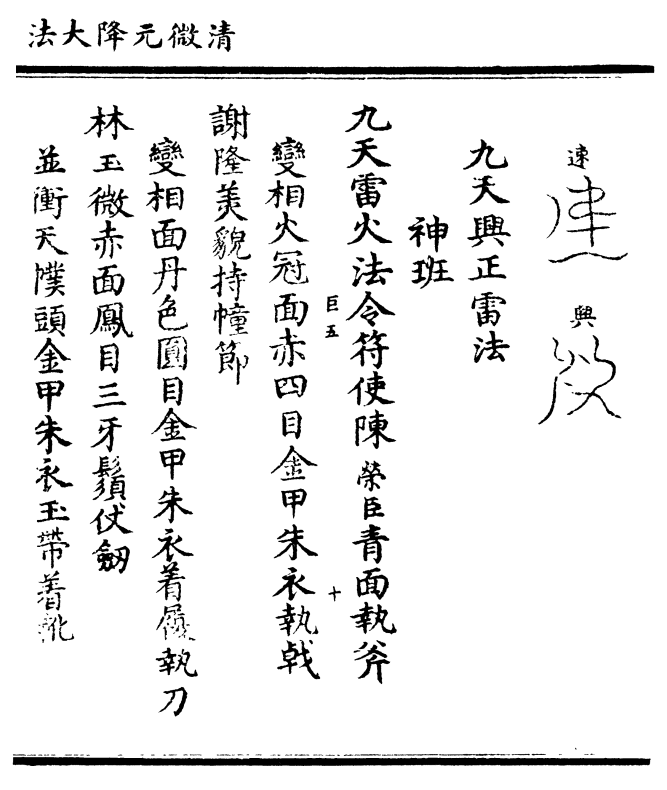 清微元降大法
速
興
九天興正雷法
神班
九天雷火法令符使陳榮臣青面執斧
巨五
十
變相火冠面赤四目金甲朱衣執戟
謝隆美貌持幢節
變相面丹色圓目金甲朱衣着履執刀
林玉微赤面鳳目三牙鬚仗劒
並衝天幞頭金甲朱衣玉帶着靴